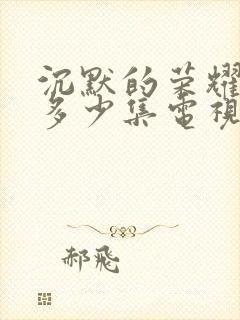 沉默的荣耀
多少集電視
郝飛